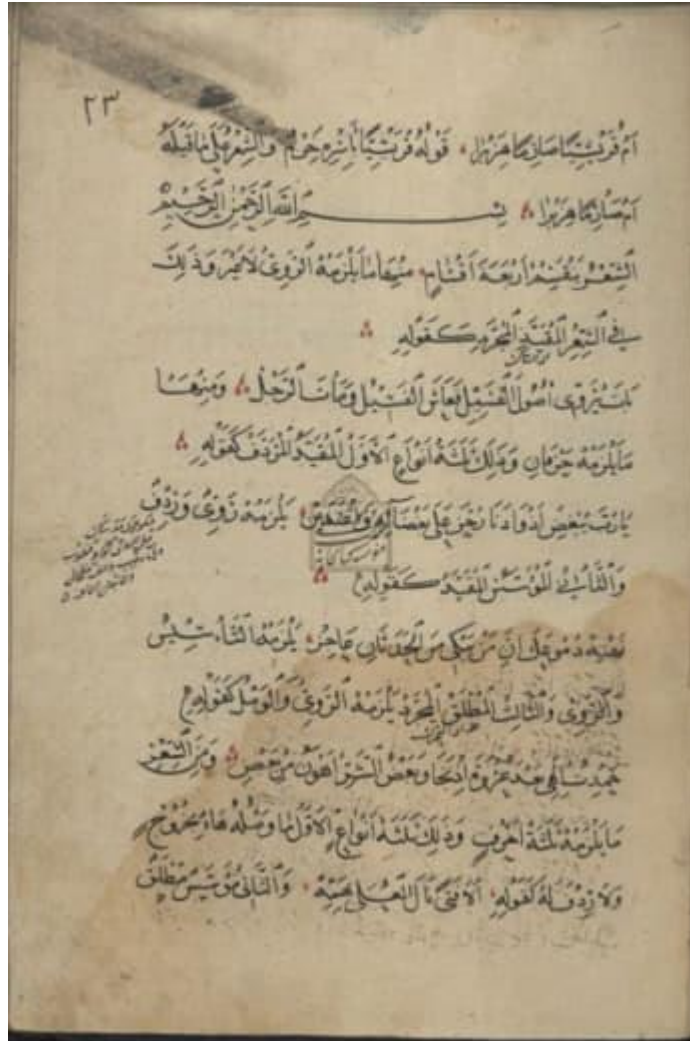 ٢٣
ام قرشيا صارما هزبرا قوله قرشيا باسره حرم والشعر على ما قبله
ام صارما هزبرا بسم الله الرحمن الرحيم
الشعر ينقسم اربعة اقسام منها ما يلزمه الروي لا غير وذلك
في الشعر المقيد المجرد كقوله
اصول الفسيل فعاش الفسيل ومات الرجل ومنها
ما يلزمه حرفان وذلك ثلثة انواع الاول المقيد المردف كقوله
يا رب تبغض اذوادنا رحن على بغضائه واغتدين يلزمه روي وردف
والثاني المؤسس المقيد كقوله
دموعك ان من يبكي من الحدثان عاجز يلزمه التأسيس
والروي والثالث المطلق المجرد يلزمه الروي والوصل كقوله
حمدت الهي بعد عروة اذ نجا وبعض الشر اهون من بعض ومن الشعر
ما يلزمه ثلثة احرف وذلك ثلثة انواع الاول ما وصله هاء وخروج
ولا ردف له كقوله الا فتى نال العلى بهمه والثاني مؤسس مطلق